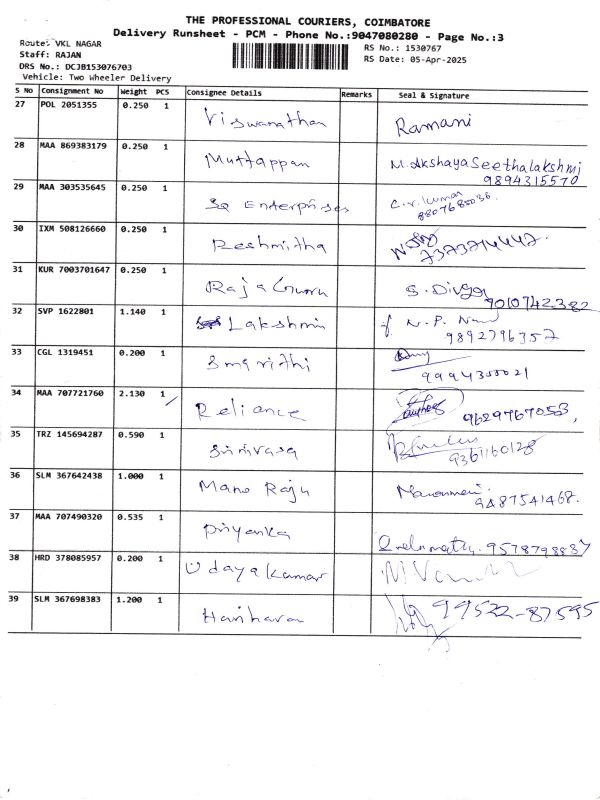 THE PROFESSIONAL COURIERS, COIMBATORE
Delivery Runsheet - PCM - Phone No.:9047080280 - Page No.:3
Route: VKL NAGAR
RS No.: 1530767
Staff: RAJAN
RS Date: 05-Apr-2025
DRS No.: DCJB153076703
Vehicle: Two Wheeler Delivery
S No Consignment No Weight PCS Consignee Details Remarks Seal & Signature
27 POL 2051355 0.250 1 Viswanathan Ramani
28 MAA 869383179 0.250 1 Muttappan M. Akshaya Seethalakshmi
9894315570
29 MAA 303535645 0.250 1 Sq Enterprises C.V. Kumar
8807680036.
30 IXM 508126660 0.250 1 Reshmitha
7373714447.
31 KUR 7003701647 0.250 1 Raja Guru S. Divya
9010742382
32 SVP 1622801 1.140 1 Lakshmi N. P.
9892796357
33 CGL 1319451 0.200 1 Smrithi
9994355021
34 MAA 707721760 2.130 1 Reliance 9629767053,
35 TRZ 145694287 0.590 1 Srinivasa
9361160128
36 SLM 367642438 1.000 1 Mano Raju
9487541468.
37 MAA 707490320 0.535 1 Priyanka 9578798837
38 HRD 378085957 0.200 1 Udayakumar
39 SLM 367698383 1.200 1 Hariharan 99522-87595